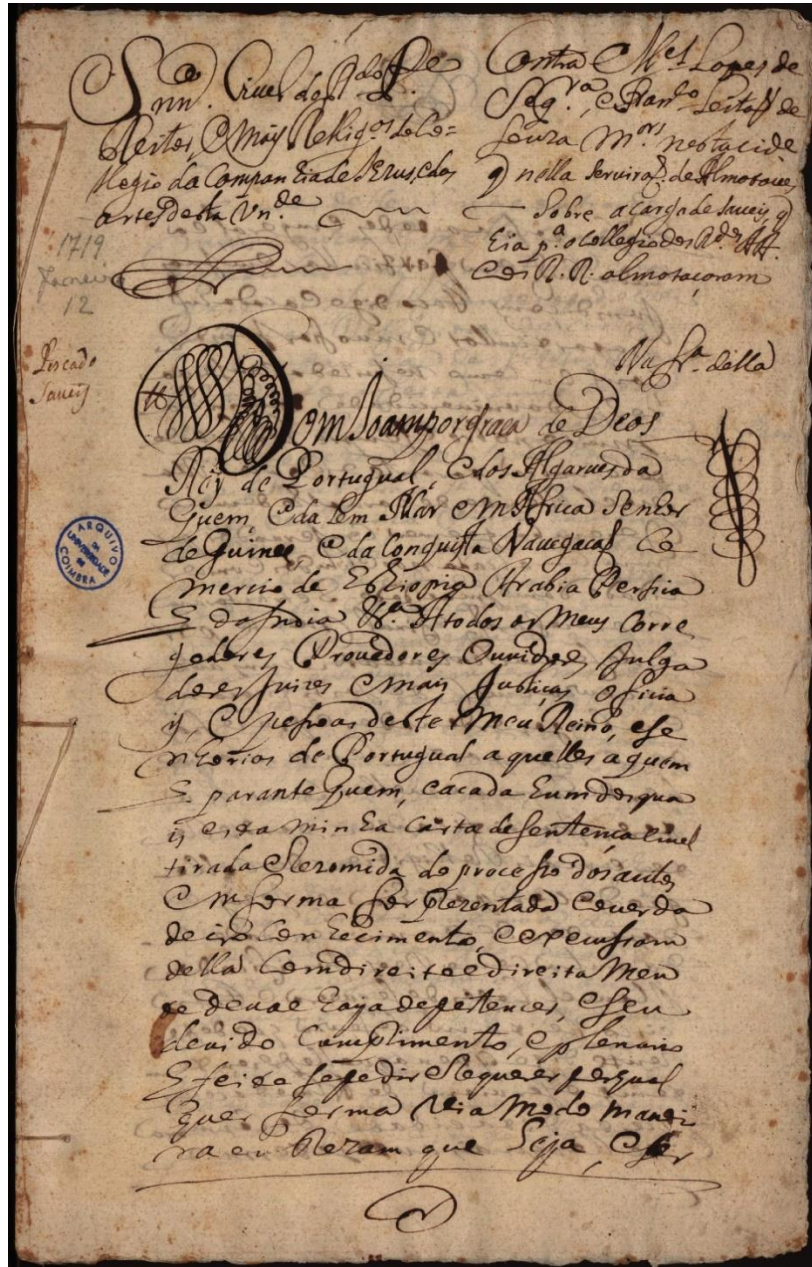 Snnª. Civel do R.do P.e
Reitor, e mais Religos. do Co=
llegio da Companhia de Jezus, e das
artes desta Un.de
Contra M.el Lopes de
Seq.ra, e Fran.co Leitaõ de
Souza M.ors nesta cide
q nella serviraõ de Almotaceis
Sobre a carga de saveis q
hia p.ª o Collegio dos R.dos AA.
e os R. R. almotaçaram
1719
Janeiro
12
Pescado
Saveis
Na fr.ª della
Dom Joam por graca de Deos
Rey de Portugual, e dos Algarues da
quem, e da lem Mar em Africa Senhor
de Guinee, e da Conquista Navegacaõ Co
mercio de Ethiopia Arabia Persia
E da India &.ª A todos os Meus Corre
jedores Prouedores Ouuidores Julga
dores Juizes e mais Justiças officia
ys, e pessoas destes Meu Reino, e se
nhorios de Portugual a quelles a quem
E parante quem, e a cada hum dos qua
is esta minha carta de sentença Civel
tirada e Rezomida do processo dos autos
em forma for aprezentada e o uerda
deiro Conhecimento, e execussam
della Com direito e direita Men
te deua e haja de pertencer, e seu
deuido Cumprimento, e plenario
Efeito se pedir e Requerer por qual
quer forma Via Modo manei
ra ou Rezam que Seja, e ser
ARQUIVO
DA
UNIVERSIDADE
DE
COIMBRA